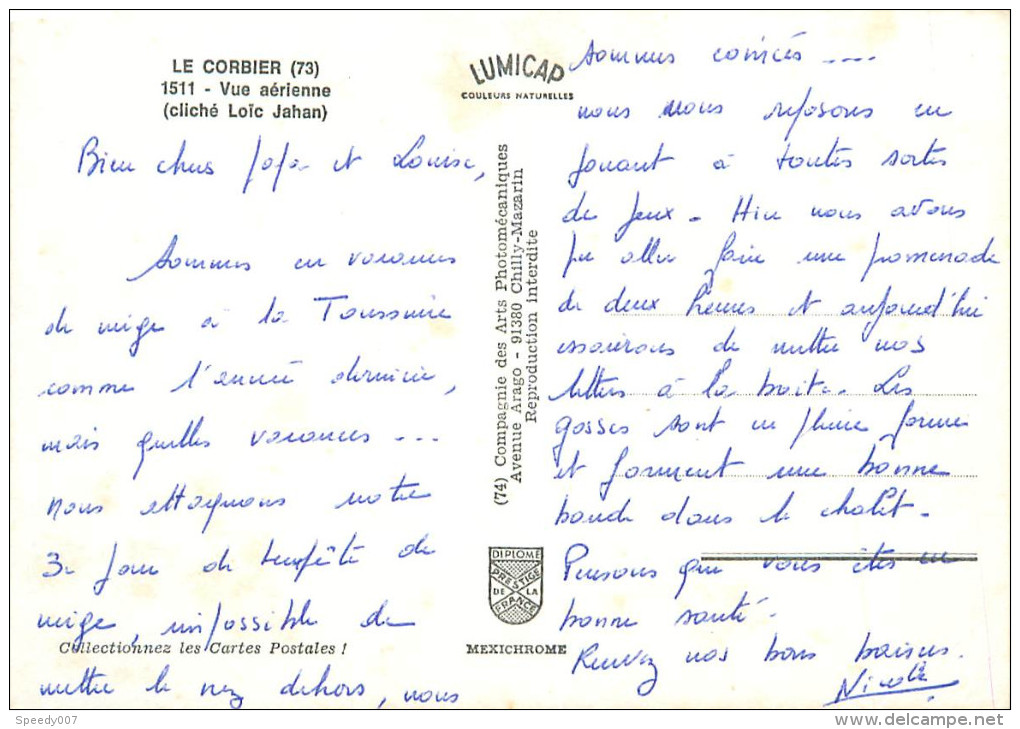 LE CORBIER (73)
1511 - Vue aérienne
(cliché Loïc Jahan)
LUMICAP
COULEURS NATURELLES
Bien chers papa et Louise,
Sommes en vacances
de neige à la Toussuire
comme l'année dernière,
mais quelles vacances ...
nous attaquons notre
3e jour de tempête de
neige, impossible de
mettre le nez dehors, nous
Collectionnez les Cartes Postales !
(74) Compagnie des Arts Photomécaniques
Avenue Arago - 91380 Chilly-Mazarin
Reproduction interdite
DIPLOME
PRESTIGE
DE LA
FRANCE
MEXICHROME
sommes coincés ....
nous nous reposons en
jouant à toutes sortes
de jeux - Hier nous avons
pu aller faire une promenade
de deux heures et aujourd'hui
essaierons de mettre nos
lettres à la boite. Les
gosses sont en pleine forme
et forment une bonne
bande dans le chalet.
Pensons que vous êtes en
bonne santé.
Recevez nos bons baisers.
Nicole
Speedy007
delcampe.net